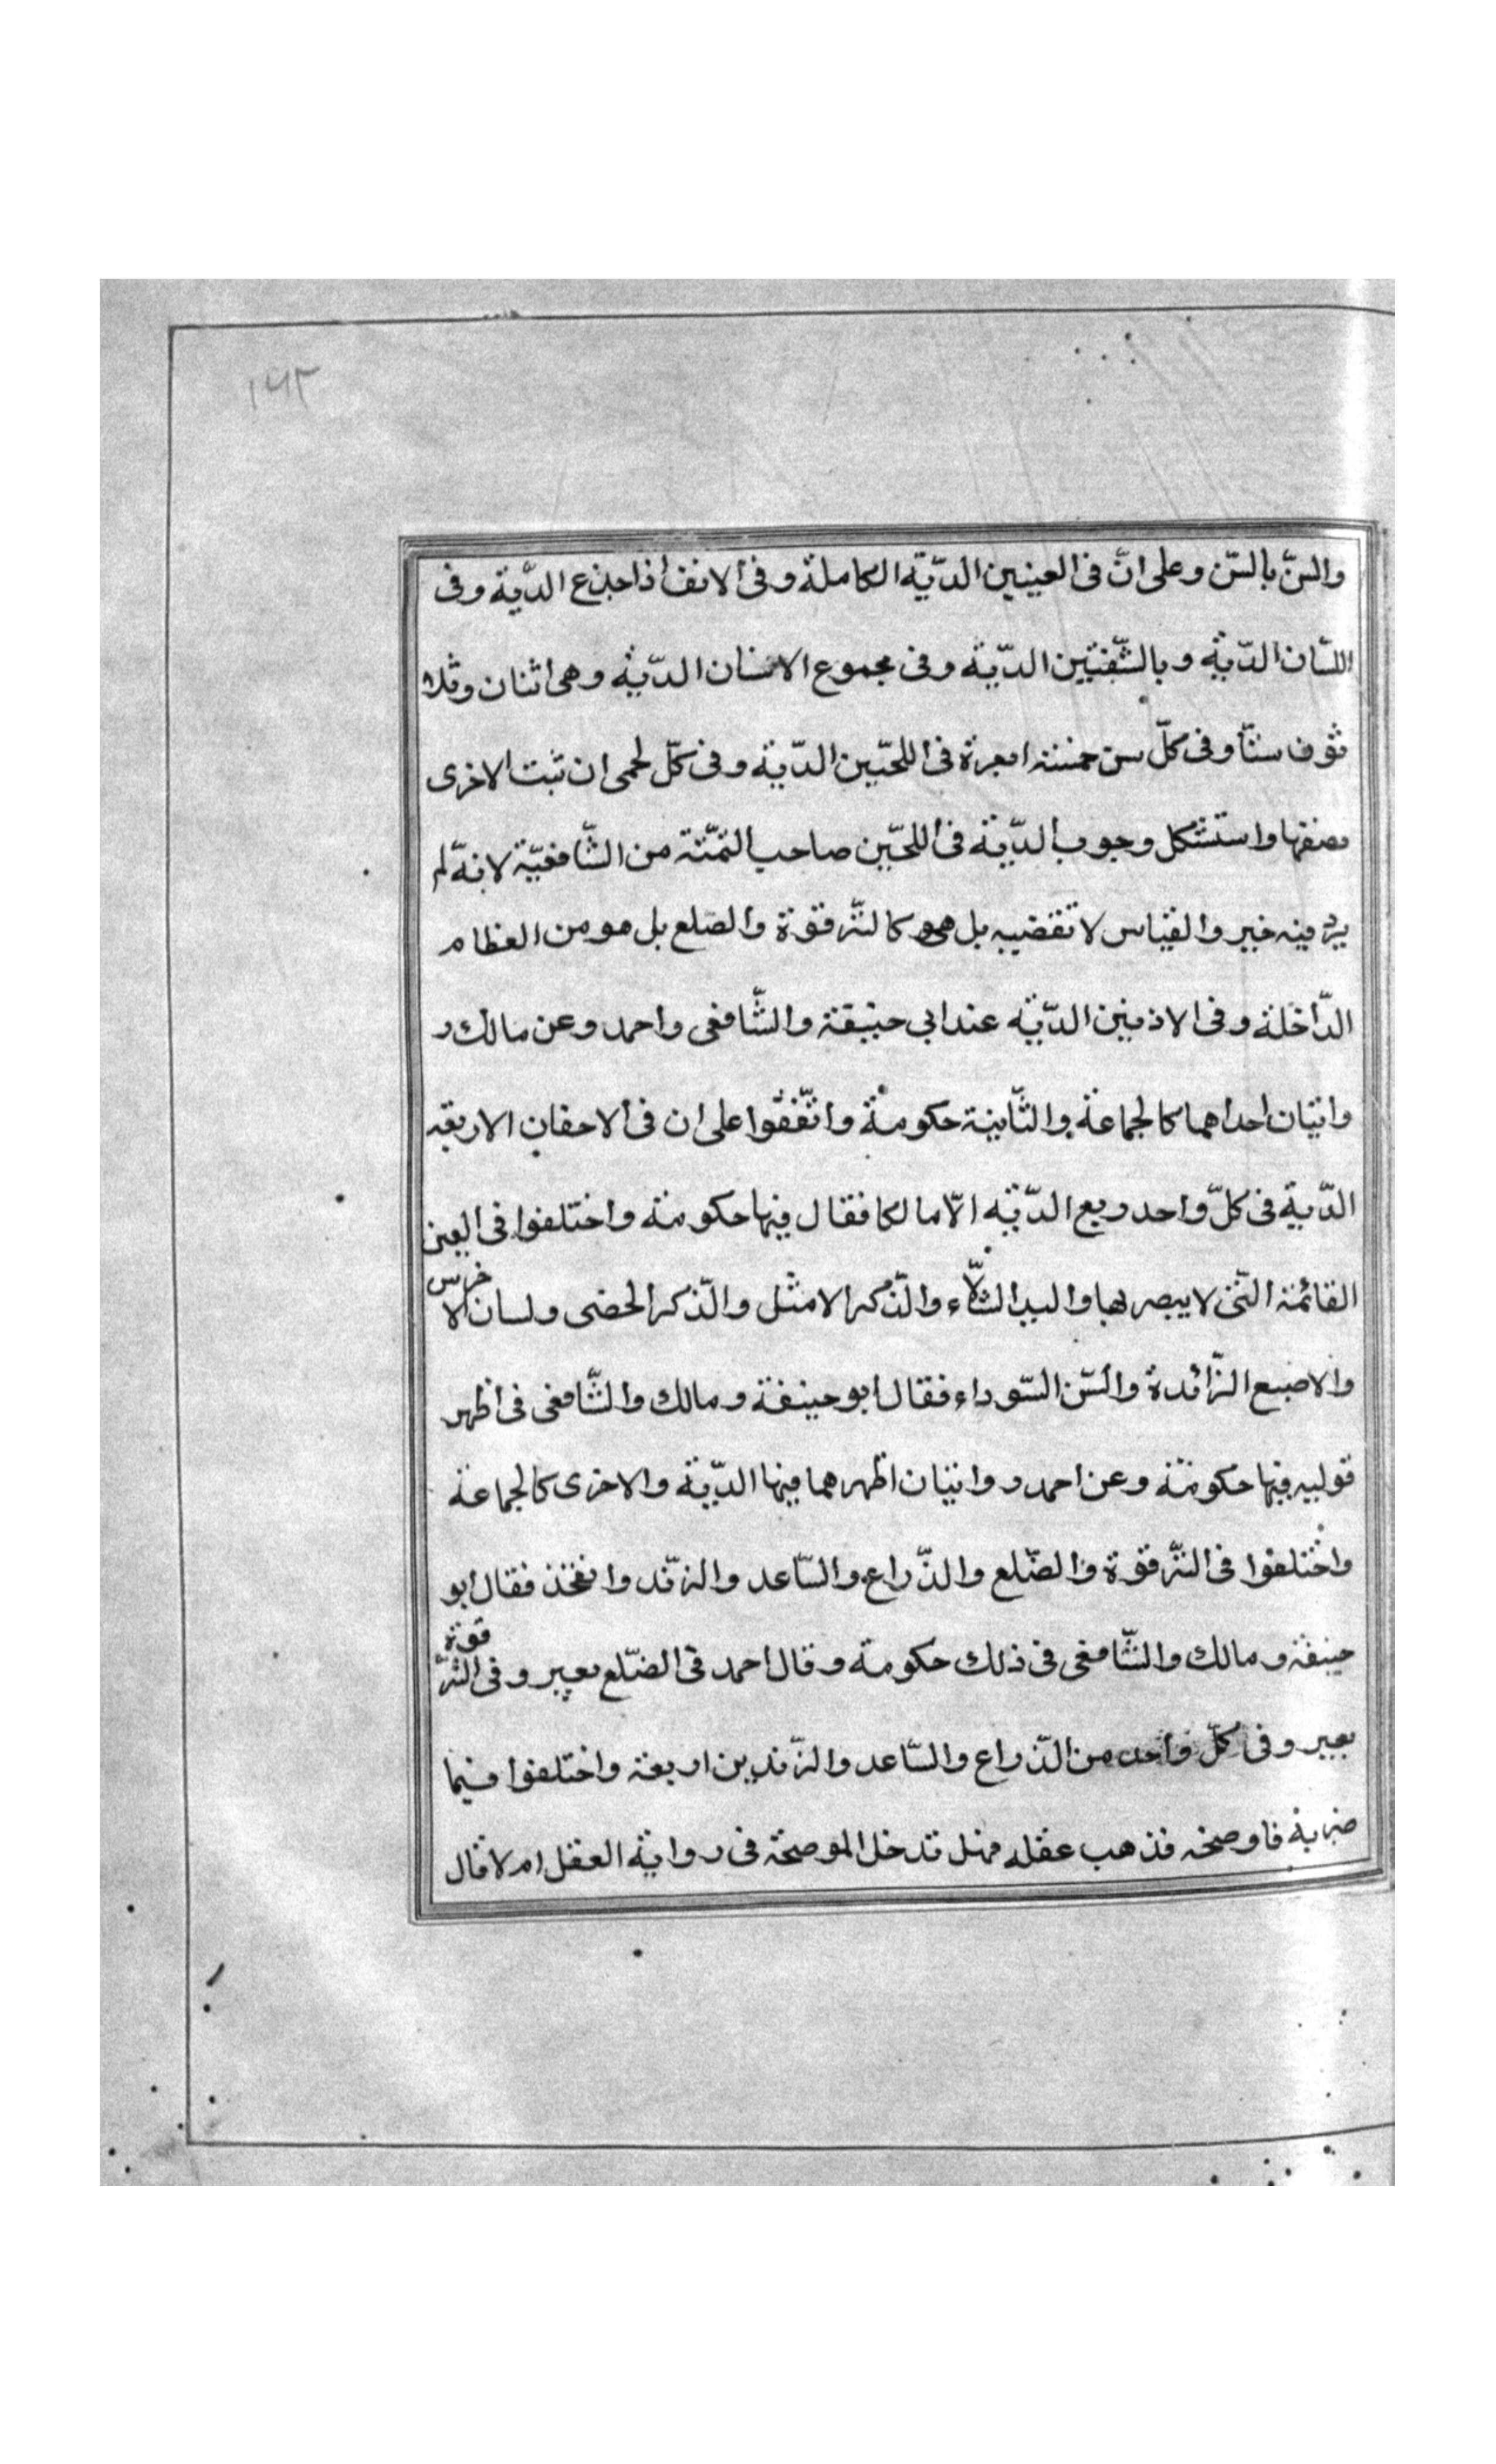 ١٦٢
والسّنّ بالسّن وعلى انّ فى العينين الدّيّة الكاملة وفى الانف اذا جذع الدّيّة وفى
اللسّان الدّية وبالشّفتين الدّية وفى مجموع الاسنان الدّية وهى اثنان وثلا
ثون سنّا وفى كلّ سن خمسة ابعرة فى اللحيّين الدّية وفى كلّ لحمى ان ثبت الاخرى
نصفها واستشكل وجوب الدّية فى اللحيّين صاحب التمّتة من الشّافعيّة لانهّ لم
يرد فيه خبر والقياس لا تقضيه بل هو كالتّرقوة والضلع بل هو من العظام
الدّاخلة وفى الاذنين الدّيّة عند ابي حنيفة والشّافعى واحمد وعن مالك ر
وايتان احداهما كالجماعة والثّانية حكومة واتّفقوا على ان فى الاجفان الاربعة
الدّية فى كلّ واحد ربع الدّية الاّ مالكا فقال فيها حكومة واختلفوا فى العين
القائمة التّى لا يبصر بها واليد الشلّاء والذّكر الامثل والذّكر الخصى ولسان الاخرس
والاصبع الزّائدة والسّن السّوداء فقال ابو حنيفة ومالك والشّافعى فى اظهر
قوليه فيها حكومة وعن احمد روايتان اظهرهما فيها الدّية والاخرى كالجماعة
واختلفوا فى التّرقوة والضّلع والذّراع والسّاعد والزّند والفخذ فقال ابو
حنيفة ومالك والشّافعى فى ذلك حكومة وقال احمد فى الضّلع بعير وفى التّرقوة
بعير وفى كلّ واحد من الذّراع والسّاعد والزّندين اربعة واختلفوا فيما
ضربه فاوضحه فذهب عقله فهل تدخل الموضحة فى رواية العقل ام لا قال